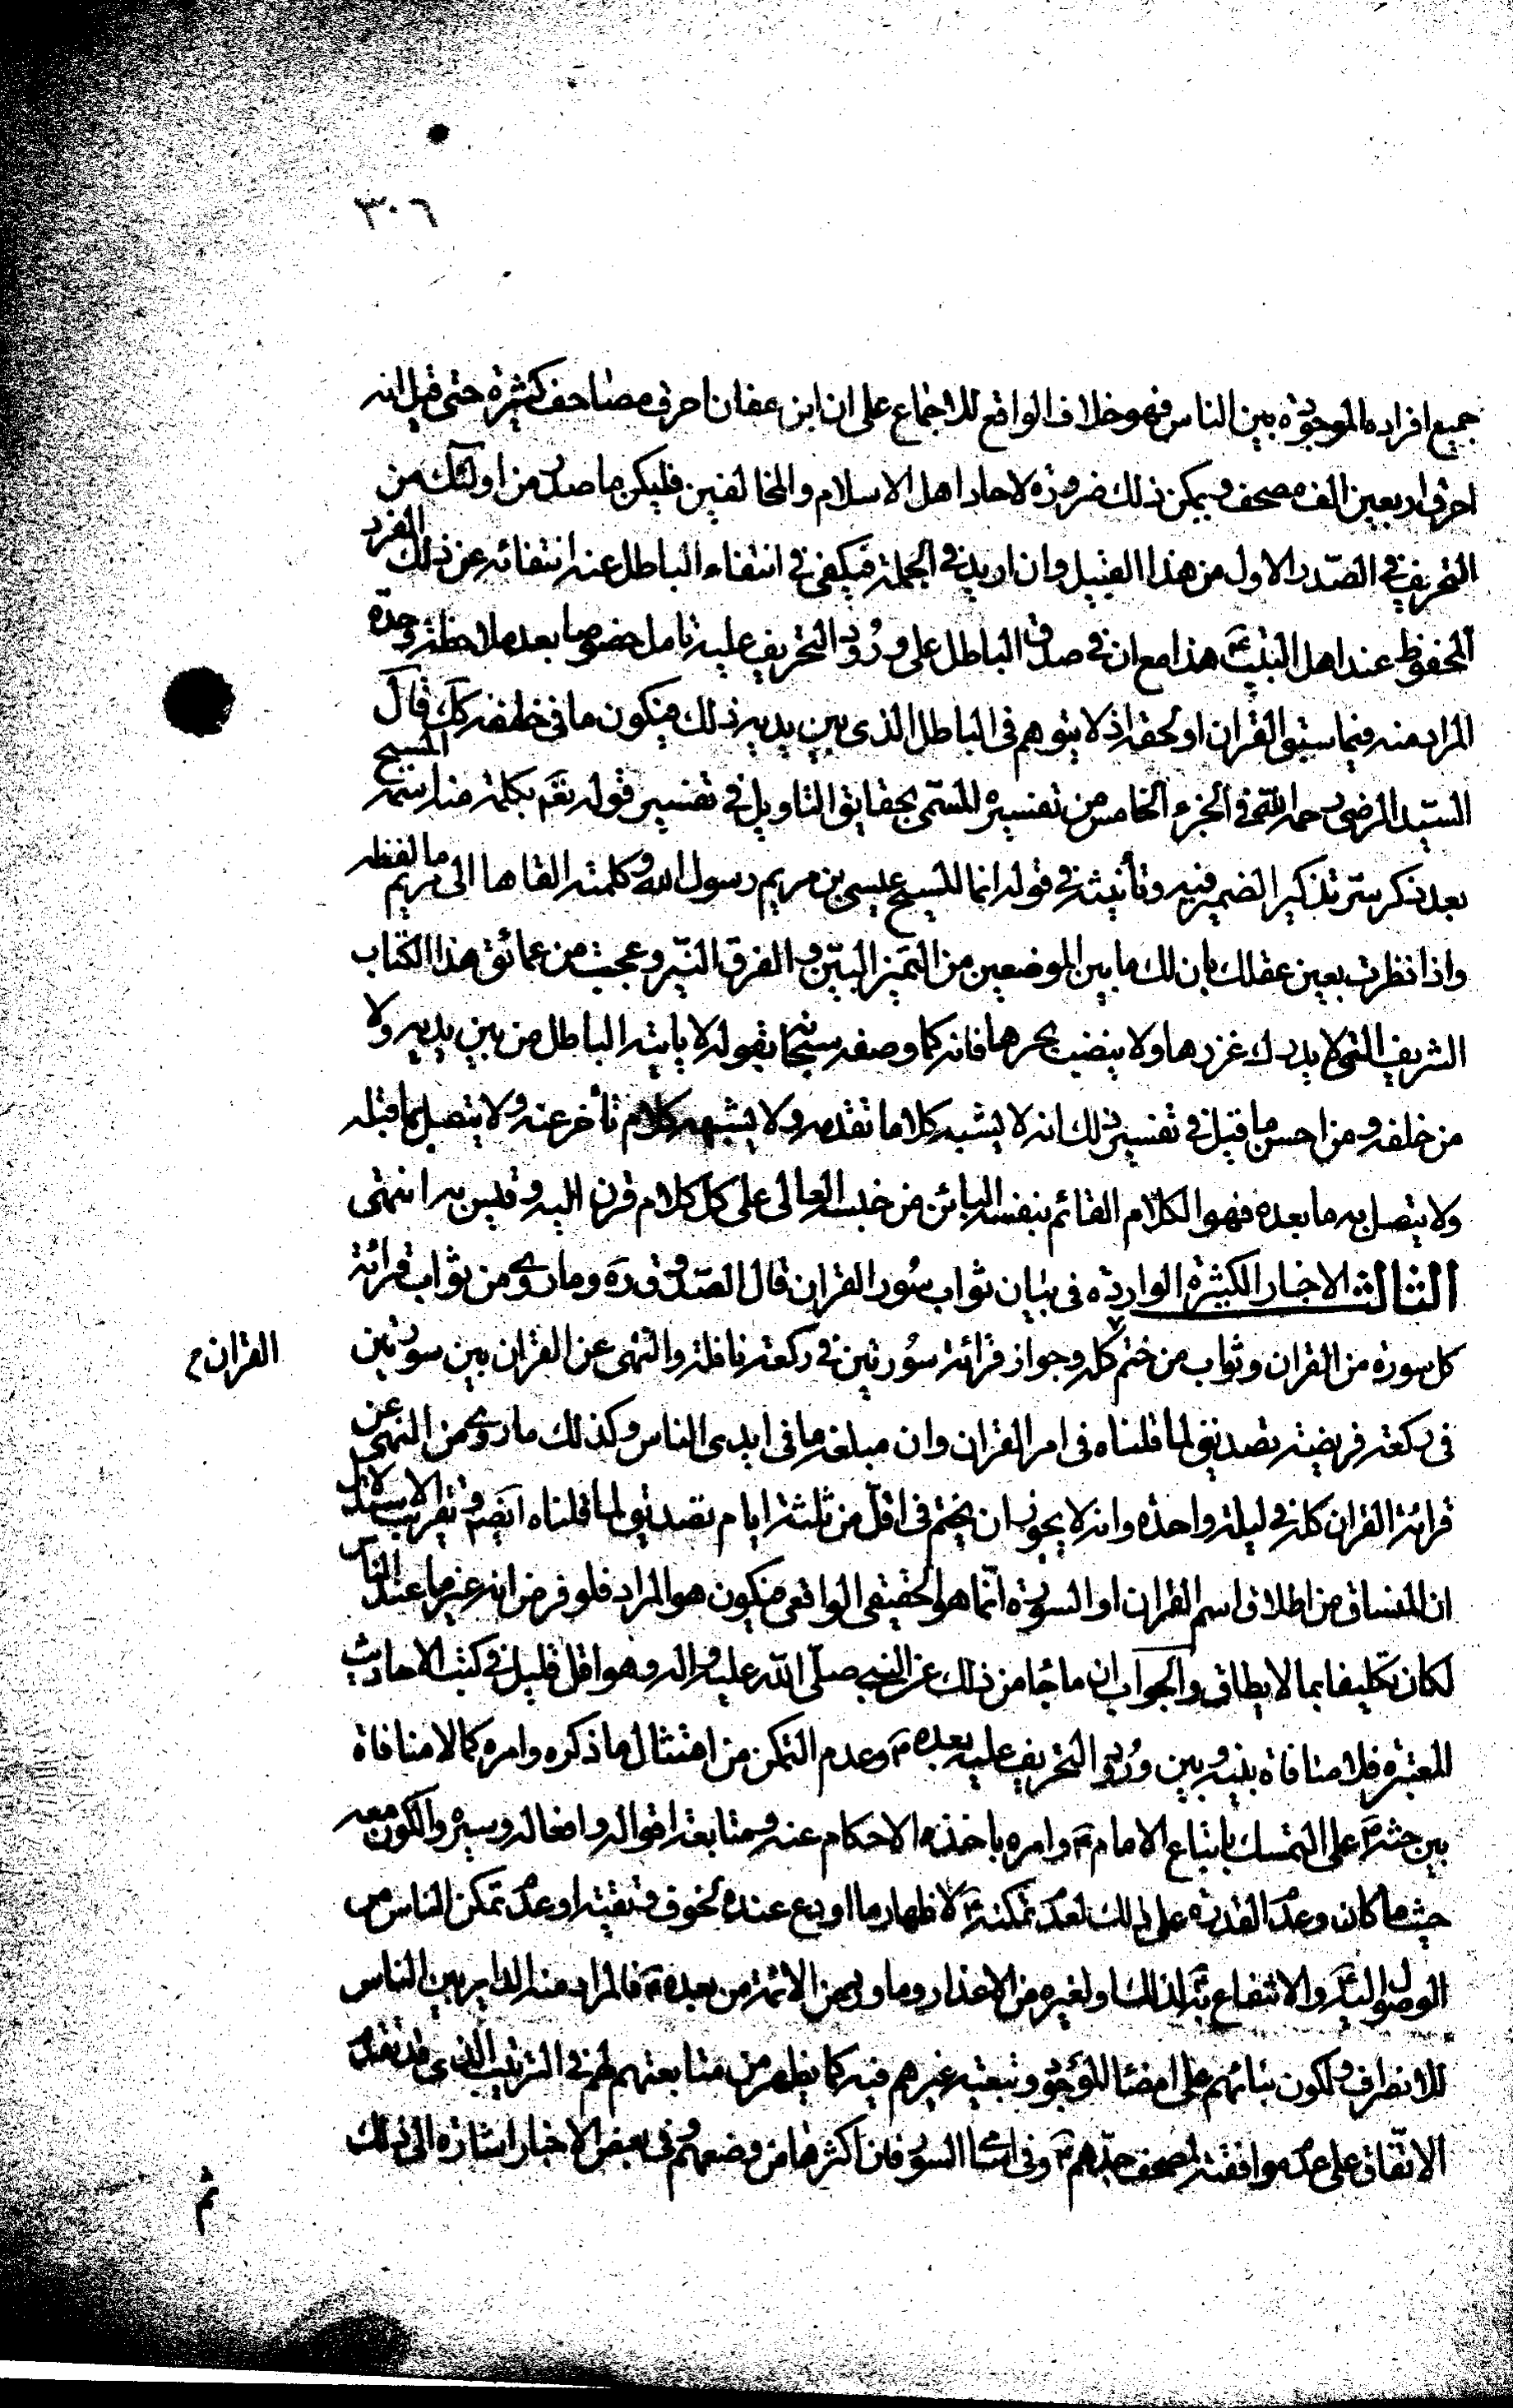 ٣٠٦
جميع افراده الموجودة بين الناس فهو خلاف الواقع للاجماع على ان ابن عفان احرق مصاحف كثيرة حتى قيل انه
احرق اربعين الف مصحف ويمكن ذلك ضرورة لاحاد اهل الاسلام والمخالفين فليكن ما صدر من اولئك من
التحريف في الصدر الاول من هذا القبيل وان اريد في الجملة فيكفى في انتفاء الباطل عنه انتفائه عن ذلك الفرد
المحفوظ عند اهل البيت ع هذا مع ان في صدق الباطل على ورود التحريف عليه تامل خصوصا بعد ملاحظة وحدة
المراد منه فيما سبق القران او لحقه اذ لا يتوهم فى الباطل الذى بين يديه ذلك فيكون ما فى خلفه كك قال
السيد الرضي رحمه الله في الجزء الخامس من تفسيره المسمى بحقايق التاويل في تفسير قوله تعم بكلمة منه اسمه المسيح
بعد ذكر ستر تذكير الضمير فيه وتأنيثه في قوله انما المسيح عيسى بن مريم رسول الله وكلمته القاها الى مريم ما لفظه
واذا نظرت بعين عقلك بان لك ما بين الموضعين من التميز البين والفرق النير وعجبت من عمائق هذا الكتاب
الشريف التي لا يدرك غزرها ولا ينضب بحرها فانه كما وصفه سبحانه بقوله لا ياتيه الباطل من بين يديه ولا
من خلفه ومن احسن ما قيل في تفسير ذلك انه لا يشبه كلاما تقدمه ولا يشبهه كلام تأخر عنه ولا يتصل بما قبله
ولا يتصل به ما بعده فهو الكلام القائم بنفسه البائن من جنسه العالى على كل كلام قرن اليه وقيس به انتهى
الثالث الاخبار الكثيرة الواردة فى بيان ثواب سور القران قال الصدوق ره وما روى من ثواب قرائة
كل سورة من القران وثواب من ختم كله وجواز قرائة سورتين في ركعة نافلة والنهى عن القران بين سورتين
القران م
فى ركعة فريضة تصديق لما قلناه فى امر القران وان مبلغه ما فى ايدى الناس وكذلك ما روى من النهى عن
قرائة القران كله في ليلة واحدة وانه لا يجوز ان يختم فى اقل من ثلثة ايام تصديق لما قلناه ايضه وتقريب الاستدلال
ان المنساق من اطلاق اسم القران او السورة انما هو الحقيقى الواقعى فيكون هو المراد فلو فرض انه غير ما عند الناس
لكان تكليفا بما لا يطاق والجواب ان ما جا من ذلك عن النبي صلى الله عليه واله وهو اقل قليل في كتب الاحاديث
المعتبرة فلا منافاة بينه وبين ورود التحريف عليه بعده ص وعدم التمكن من امتثال ما ذكره وامره كما لا منافاة
بين حثه ص على التمسك باتباع الامام ع وامره باخذ الاحكام عنه ومتابعة اقواله وافعاله وسيره والكون معه
حيث ما كان وعدم القدرة على ذلك لعدم تمكنه ع لاظهار ما اودع عنده لخوف وتقية او عدم تمكن الناس من
الوصول اليه والانتفاع به لذلك او لغيره من الاعذار وما ورد من الائمة من بعده ع فالمراد منه الداير بين الناس
للانصراف ولكون بنائهم على امضاء الموجود وتبعية غيرهم فيه كما يظهر من متابعتهم لهم في الترتيب الذى قد تقدم
الاتفاق على عدم موافقته لمصحف جدهم ع وفى اسامى السور فان اكثرها من وضعهم وفى بعض الاخبار اشارة الى ذلك
ثم